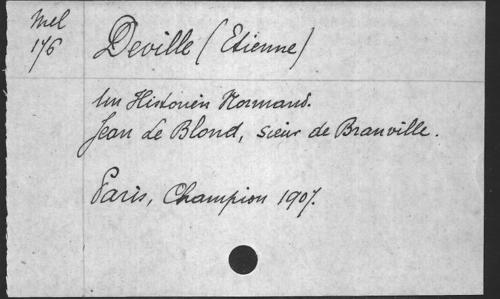 Mel
176
Deville (Etienne)
Un Historien Normand.
Jean Le Blond, sieur de Branville.
Paris, Champion 1907.